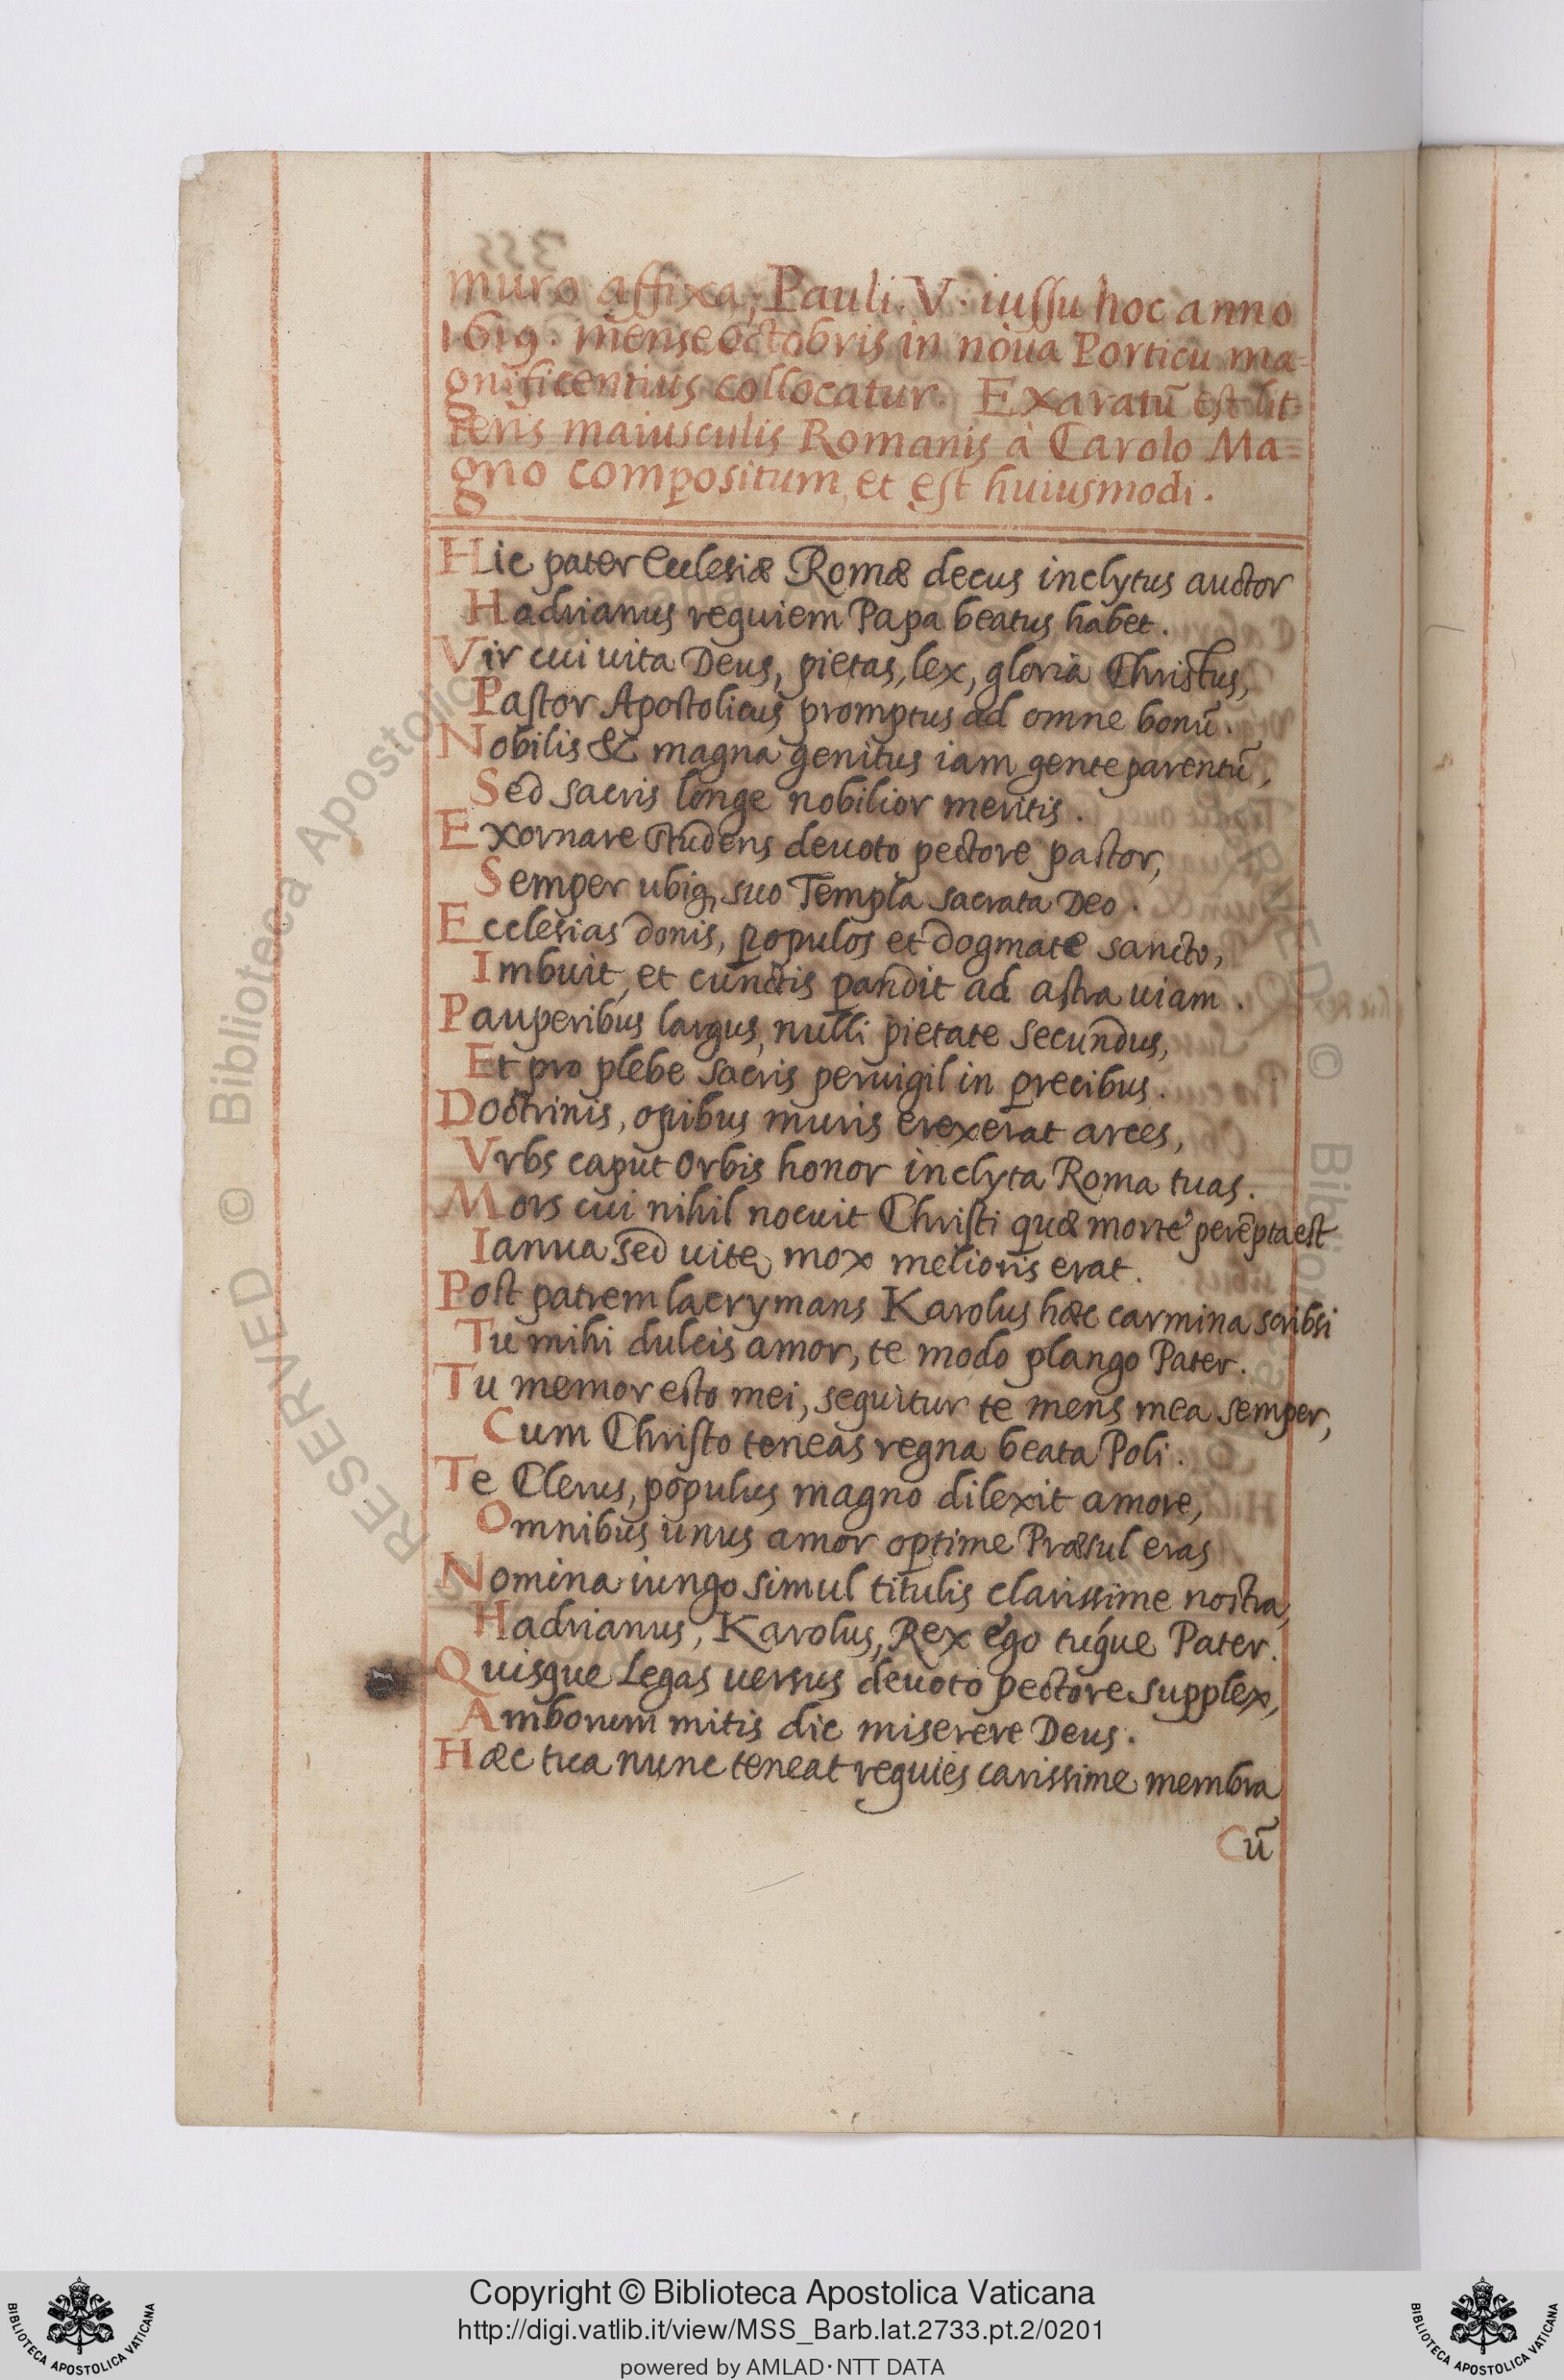 muro affixa, Pauli. V. iussu hoc anno
1619. mense Octobris in noua Porticu ma=
gnificentius collocatur. Exaratū est lit=
teris maiusculis Romanis à Carolo Ma=
gno compositum, et est huiusmodi.
Hic pater Ecclesiæ Romæ decus inclytus auctor
Hadrianus requiem Papa beatus habet.
Vir cui uita Deus, pietas, lex, gloria Christus,
Pastor Apostolicus promptus ad omne bonū.
Nobilis & magna genitus iam gente parentū,
Sed sacris longe nobilior meritis.
Exornare studens deuoto pectore pastor,
Semper ubiq, suo Templa sacrata Deo.
Ecclesias donis, populos et dogmate sancto,
Imbuit, et cunctis pandit ad astra uiam.
Pauperibus largus, nulli pietate secundus,
Et pro plebe sacris peruigil in precibus.
Doctrinis, opibus muris erexerat arces,
Vrbs caput Orbis honor inclyta Roma tuas.
Mors cui nihil nocuit Christi quæ morte perēpta est
Ianua sed uitę mox melioris erat.
Post patrem lacrymans Karolus hæc carmina scribsi
Tu mihi dulcis amor, te modo plango Pater.
Tu memor esto mei, sequitur te mens mea semper,
Cum Christo teneas regna beata Poli.
Te Clerus, populus magno dilexit amore,
Omnibus unus amor optime Præsul eras
Nomina iungo simul titulis clarissime nostra,
Hadrianus, Karolus, Rex ego tuque Pater.
Quisque Legas uersus deuoto pectore supplex,
Amborum mitis dic miserere Deus.
Hæc tua nunc teneat requies carissime membra
Cū
Copyright © Biblioteca Apostolica Vaticana
http://digi.vatlib.it/view/MSS_Barb.lat.2733.pt.2/0201
powered by AMLAD·NTT DATA
BIBLIOTECA APOSTOLICA VATICANA
BIBLIOTECA APOSTOLICA VATICANA